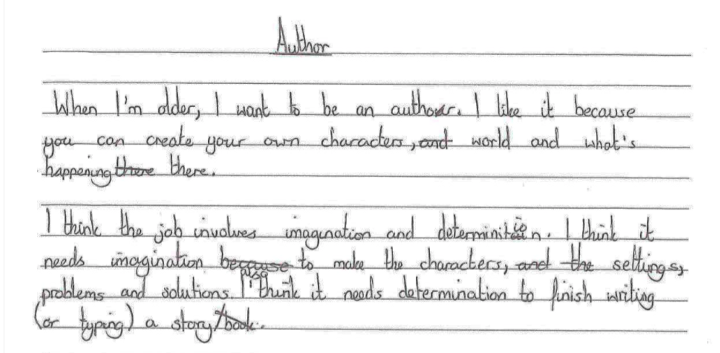 Author
When I'm older, I want to be an author. I like it because
you can create your own characters, and world and what's
happening there there.
I think the job involves imagination and determinition. I think it
needs imagination because to make the characters, and the settings,
problems and solutions. I also think it needs determination to finish writing
(or typing) a story/book.